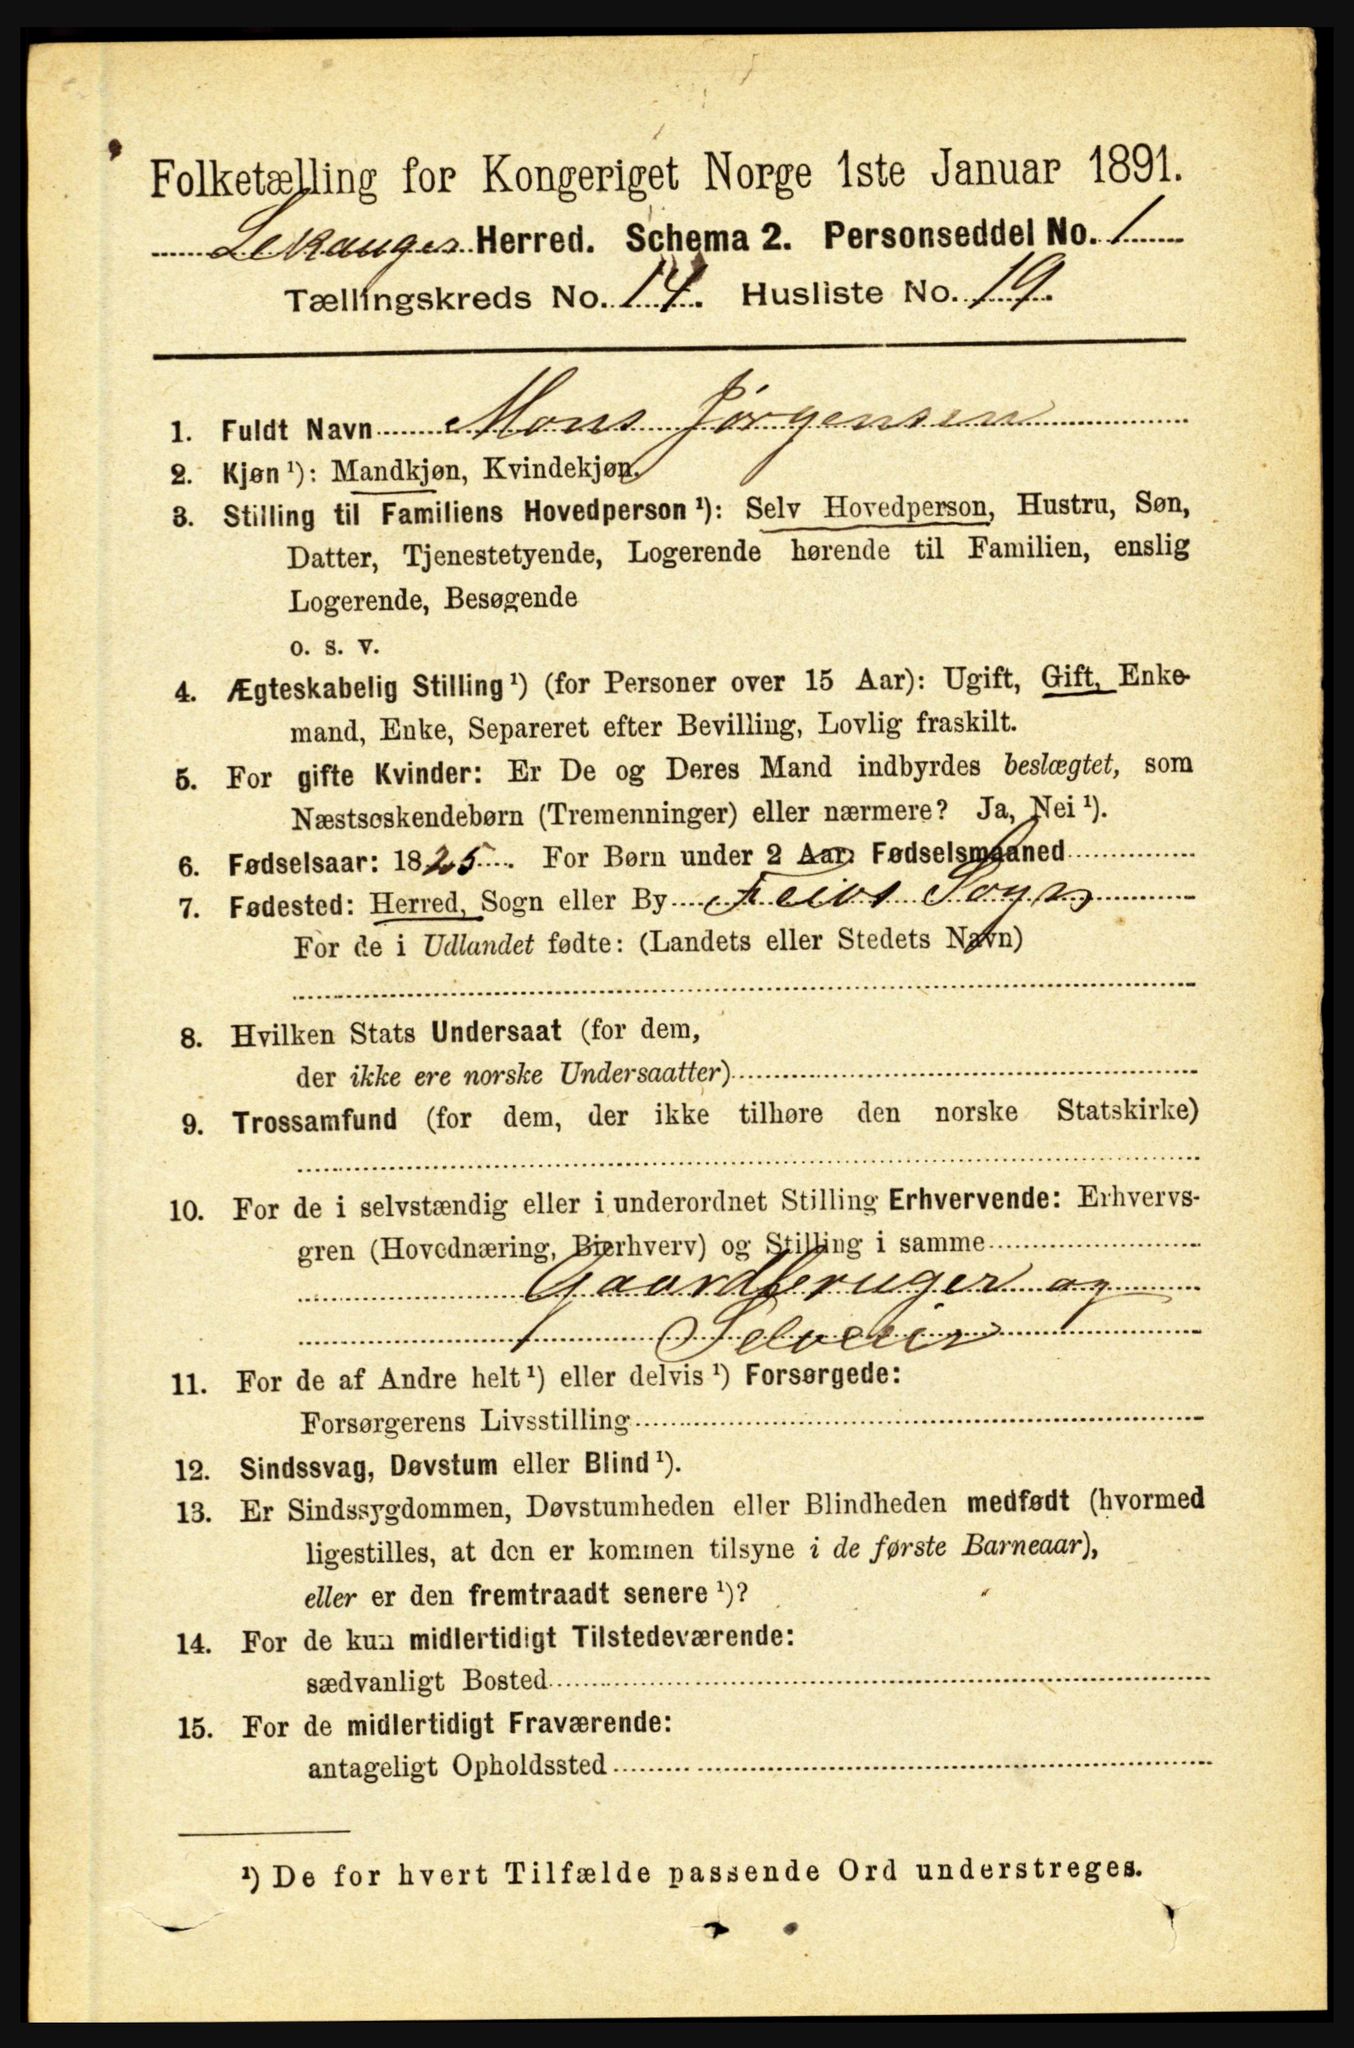 Folketælling for Kongeriget Norge 1ste Januar 1891.
Lekanger Herred. Schema 2. Personseddel No. 1
Tællingskreds No. 14. Husliste No. 19.
1. Fuldt Navn Mons Jørgensen
2. Kjøn ¹): Mandkjøn, Kvindekjøn.
3. Stilling til Familiens Hovedperson ¹): Selv Hovedperson, Hustru, Søn,
Datter, Tjenestetyende, Logerende hørende til Familien, enslig
Logerende, Besøgende
o. s. v.
4. Ægteskabelig Stilling ¹) (for Personer over 15 Aar): Ugift, Gift, Enke-
mand, Enke, Separeret efter Bevilling, Lovlig fraskilt.
5. For gifte Kvinder: Er De og Deres Mand indbyrdes beslægtet, som
Næstsøskendebørn (Tremenninger) eller nærmere? Ja, Nei ¹).
6. Fødselsaar: 1825. For Børn under 2 Aar: Fødselsmaaned
7. Fødested: Herred, Sogn eller By Feios Sogn
For de i Udlandet fødte: (Landets eller Stedets Navn)
8. Hvilken Stats Undersaat (for dem,
der ikke ere norske Undersaatter)
9. Trossamfund (for dem, der ikke tilhøre den norske Statskirke)
10. For de i selvstændig eller i underordnet Stilling Erhvervende: Erhvervs-
gren (Hovednæring, Bierhverv) og Stilling i samme
Gaardbruger og
Selveier
11. For de af Andre helt ¹) eller delvis ¹) Forsørgede:
Forsørgerens Livsstilling
12. Sindssvag, Døvstum eller Blind ¹).
13. Er Sindssygdommen, Døvstumheden eller Blindheden medfødt (hvormed
ligestilles, at den er kommen tilsyne i de første Barneaar),
eller er den fremtraadt senere ¹)?
14. For de kun midlertidigt Tilstedeværende:
sædvanligt Bosted
15. For de midlertidigt Fraværende:
antageligt Opholdssted
¹) De for hvert Tilfælde passende Ord understreges.